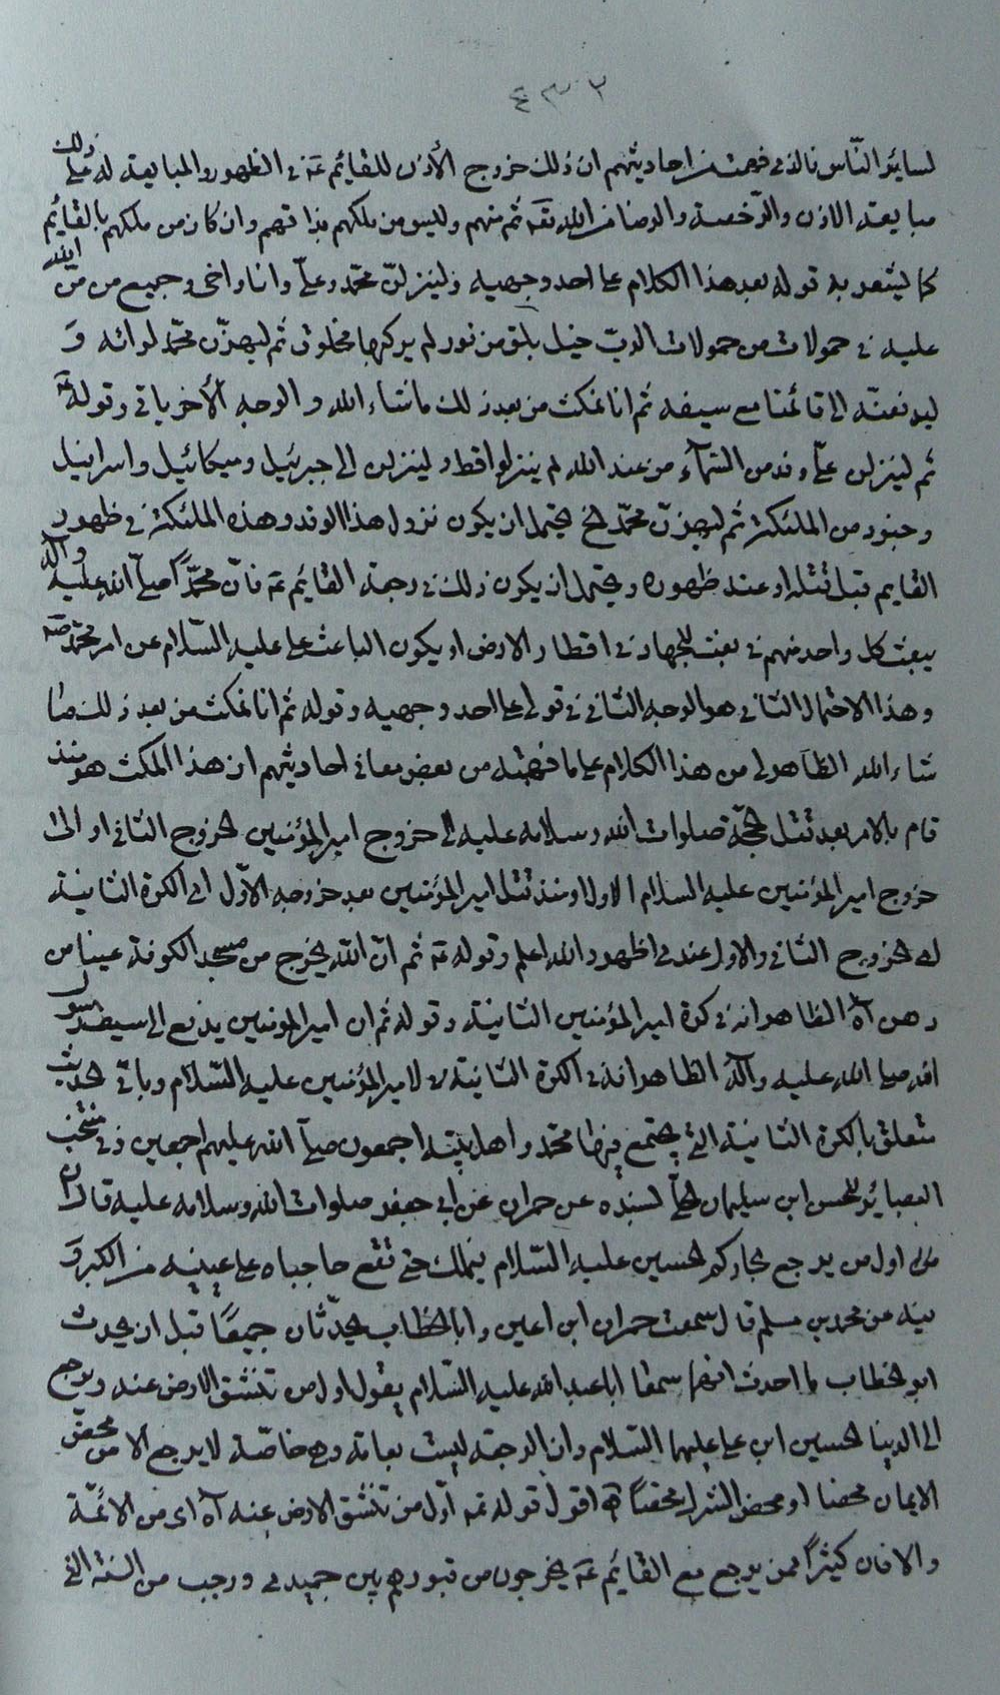 ٤٣٢
لسائر الناس فالذي فهمت من احاديثهم ان ذلك خروج الأذن للقائم عه في الظهور والمبايعة له على ذلك
مبايعته الاذن والرخصة والرضا من الله تعه ثم منهم وليس من ملكهم بذاتهم وان كان من ملكهم بالقائم
كما يشعر به قوله بعد هذا الكلام على احد وجهيه ولينزلن محمد وعلى وانا واخى وجميع من منّ الله
عليه في حمولات من حمولات الرب خيل بلق من نور لم يركبها مخلوق ثم ليهزّن محمد لوائه و
ليدفعنّه الى قائمنا مع سيفه ثم انا نمكث من بعد ذلك ما شاء الله و الوجه الأخر ياتي وقوله عه
ثم لينزلن علىّ وفد من السّمآء من عند الله لم ينزلوا قط ولينزلن الى جبرئيل وميكائيل واسرافيل
وجنود من الملئكة ثم ليهزّن محمّد الخ يحتمل ان يكون نزول هذا الوفد وهذه الملئكة في ظهور
القايم قبل قتله او عند ظهوره ويحتمل ان يكون ذلك في رجعة القايم عه فانّ محمّداً صلّى الله عليه وآله
يبعث كل واحد منهم في بعث للجهاد في اقطار الارض او يكون الباعث على عليه السّلام عن امر محمّد صه
وهذا الاحتمال الثاني هو الوجه الثاني في قولى على احد وجهيه وقوله ثم انا نمكث من بعد ذلك ما
شاء الله الظاهر لى من هذا الكلام على ما فهمته من بعض معانى احاديثهم ان هذا المكث هو منذ
قام بالامر بعد قتل الحجّة صلوات الله وسلامه عليه الى خروج امير المؤمنين الخروج الثاني او الى
خروج امير المؤمنين عليه السلام الاول او منذ قتل امير المؤمنين بعد خروجه الاوّل الى الكرة الثانية
له الخروج الثاني والاول عندى اظهر والله اعلم وقوله عه ثم انّ الله يخرج من مسجد الكوفة عينا من
دهن آه الظاهر انه في كرة امير المؤمنين الثانية وقوله ثم ان امير المؤمنين يدفع الى سيف رسول
الله صلى الله عليه وآله الظاهر انه في الكرة الثانية لامير المؤمنين عليه السّلام وباقي الحديث
متعلق بالكرة الثانية التي يجتمع فيها محمد واهل بيته اجمعون صلّى الله عليهم اجمعين وفي منتخب
البصائر للحسن ابن سليمان الحلّى بسنده عن حمران عن ابي جعفر صلوات الله وسلامه عليه قال ان
اول من يرجع لجاركم الحسين عليه السّلام فيملك حتى تقع حاجباه على عينيه من الكبر و
فيه عن محمد بن مسلم قال سمعت حمران ابن اعين وابا الخطاب يحدّثان جميعًا قبل ان يحدث
ابو الخطاب ما احدث انهما سمعا ابا عبد الله عليه السّلام يقول اول من تنشق الارض عنه ويرجع
الى الدنيا الحسين ابن على عليهما السّلام وان الرجعة ليست بعامّة وهى خاصّة لا يرجع الا من محض
الايمان محضا او محض الشرك محضاً اقول قوله عه اوّل من تنشق الارض عنه آه اى من الائمّة
والا فان كثيراً ممن يرجع مع القائم عه يخرجون من قبورهم بين جميدى ورجب من السنة التي